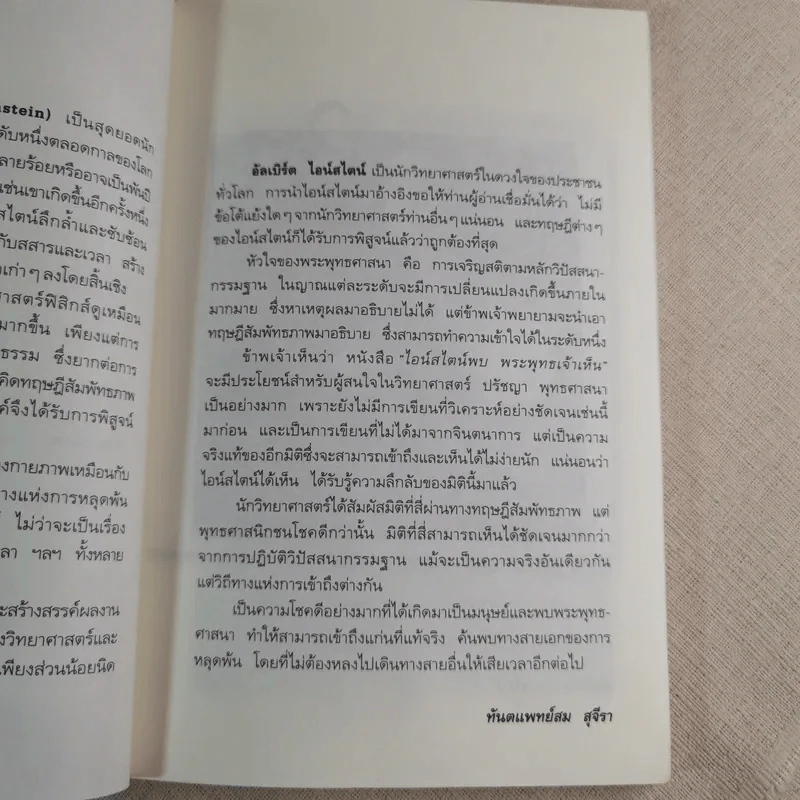 nstein) เป็นสุดยอดนัก
ดับหนึ่งตลอดกาลของโลก
ลายร้อยหรืออาจเป็นพันปี
เช่นเขาเกิดขึ้นอีกครั้งหนึ่ง
สไตน์ลึกล้ำและซับซ้อน
กับสสารและเวลา สร้าง
อเก่าๆ ลงโดยสิ้นเชิง
าสตร์ฟิสิกส์ดูเหมือน
มากขึ้น เพียงแต่การ
ธรรม ซึ่งยากต่อการ
คิดทฤษฎีสัมพัทธภาพ
ค์จึงได้รับการพิสูจน์
งกายภาพเหมือนกับ
างแห่งการหลุดพ้น
ไม่ว่าจะเป็นเรื่อง
ลา ฯลฯ ทั้งหลาย
ะสร้างสรรค์ผลงาน
งวิทยาศาสตร์และ
เพียงส่วนน้อยนิด
อัลเบิร์ต ไอน์สไตน์ เป็นนักวิทยาศาสตร์ในดวงใจของประชาชน
ทั่วโลก การนำไอน์สไตน์มาอ้างอิงขอให้ท่านผู้อ่านเชื่อมั่นได้ว่า ไม่มี
ข้อโต้แย้งใดๆ จากนักวิทยาศาสตร์ท่านอื่นๆ แน่นอน และทฤษฎีต่างๆ
ของไอน์สไตน์ก็ได้รับการพิสูจน์แล้วว่าถูกต้องที่สุด
หัวใจของพระพุทธศาสนา คือ การเจริญสติตามหลักวิปัสสนา-
กรรมฐาน ในญาณแต่ละระดับจะมีการเปลี่ยนแปลงเกิดขึ้นภายใน
มากมาย ซึ่งหาเหตุผลมาอธิบายไม่ได้ แต่ข้าพเจ้าพยายามจะนำเอา
ทฤษฎีสัมพัทธภาพมาอธิบาย ซึ่งสามารถทำความเข้าใจได้ในระดับหนึ่ง
ข้าพเจ้าเห็นว่า หนังสือ "ไอน์สไตน์พบ พระพุทธเจ้าเห็น"
จะมีประโยชน์สำหรับผู้สนใจในวิทยาศาสตร์ ปรัชญา พุทธศาสนา
เป็นอย่างมาก เพราะยังไม่มีการเขียนที่วิเคราะห์อย่างชัดเจนเช่นนี้
มาก่อน และเป็นการเขียนที่ไม่ได้มาจากจินตนาการ แต่เป็นความ
จริงแท้ของอีกมิติซึ่งจะสามารถเข้าถึงและเห็นได้ไม่ง่ายนัก แน่นอนว่า
ไอน์สไตน์ได้เห็น ได้รับรู้ความลึกลับของมิตินี้มาแล้ว
นักวิทยาศาสตร์ได้สัมผัสมิติที่สี่ผ่านทางทฤษฎีสัมพัทธภาพ แต่
พุทธศาสนิกชนโชคดีกว่านั้น มิติที่สี่สามารถเห็นได้ชัดเจนมากกว่า
จากการปฏิบัติวิปัสสนากรรมฐาน แม้จะเป็นความจริงอันเดียวกัน
แต่วิถีทางแห่งการเข้าถึงต่างกัน
เป็นความโชคดีอย่างมากที่ได้เกิดมาเป็นมนุษย์และพบพระพุทธ-
ศาสนา ทำให้สามารถเข้าถึงแก่นที่แท้จริง ค้นพบทางสายเอกของการ
หลุดพ้น โดยที่ไม่ต้องหลงไปเดินทางสายอื่นให้เสียเวลาอีกต่อไป
ทันตแพทย์สม สุจีรา